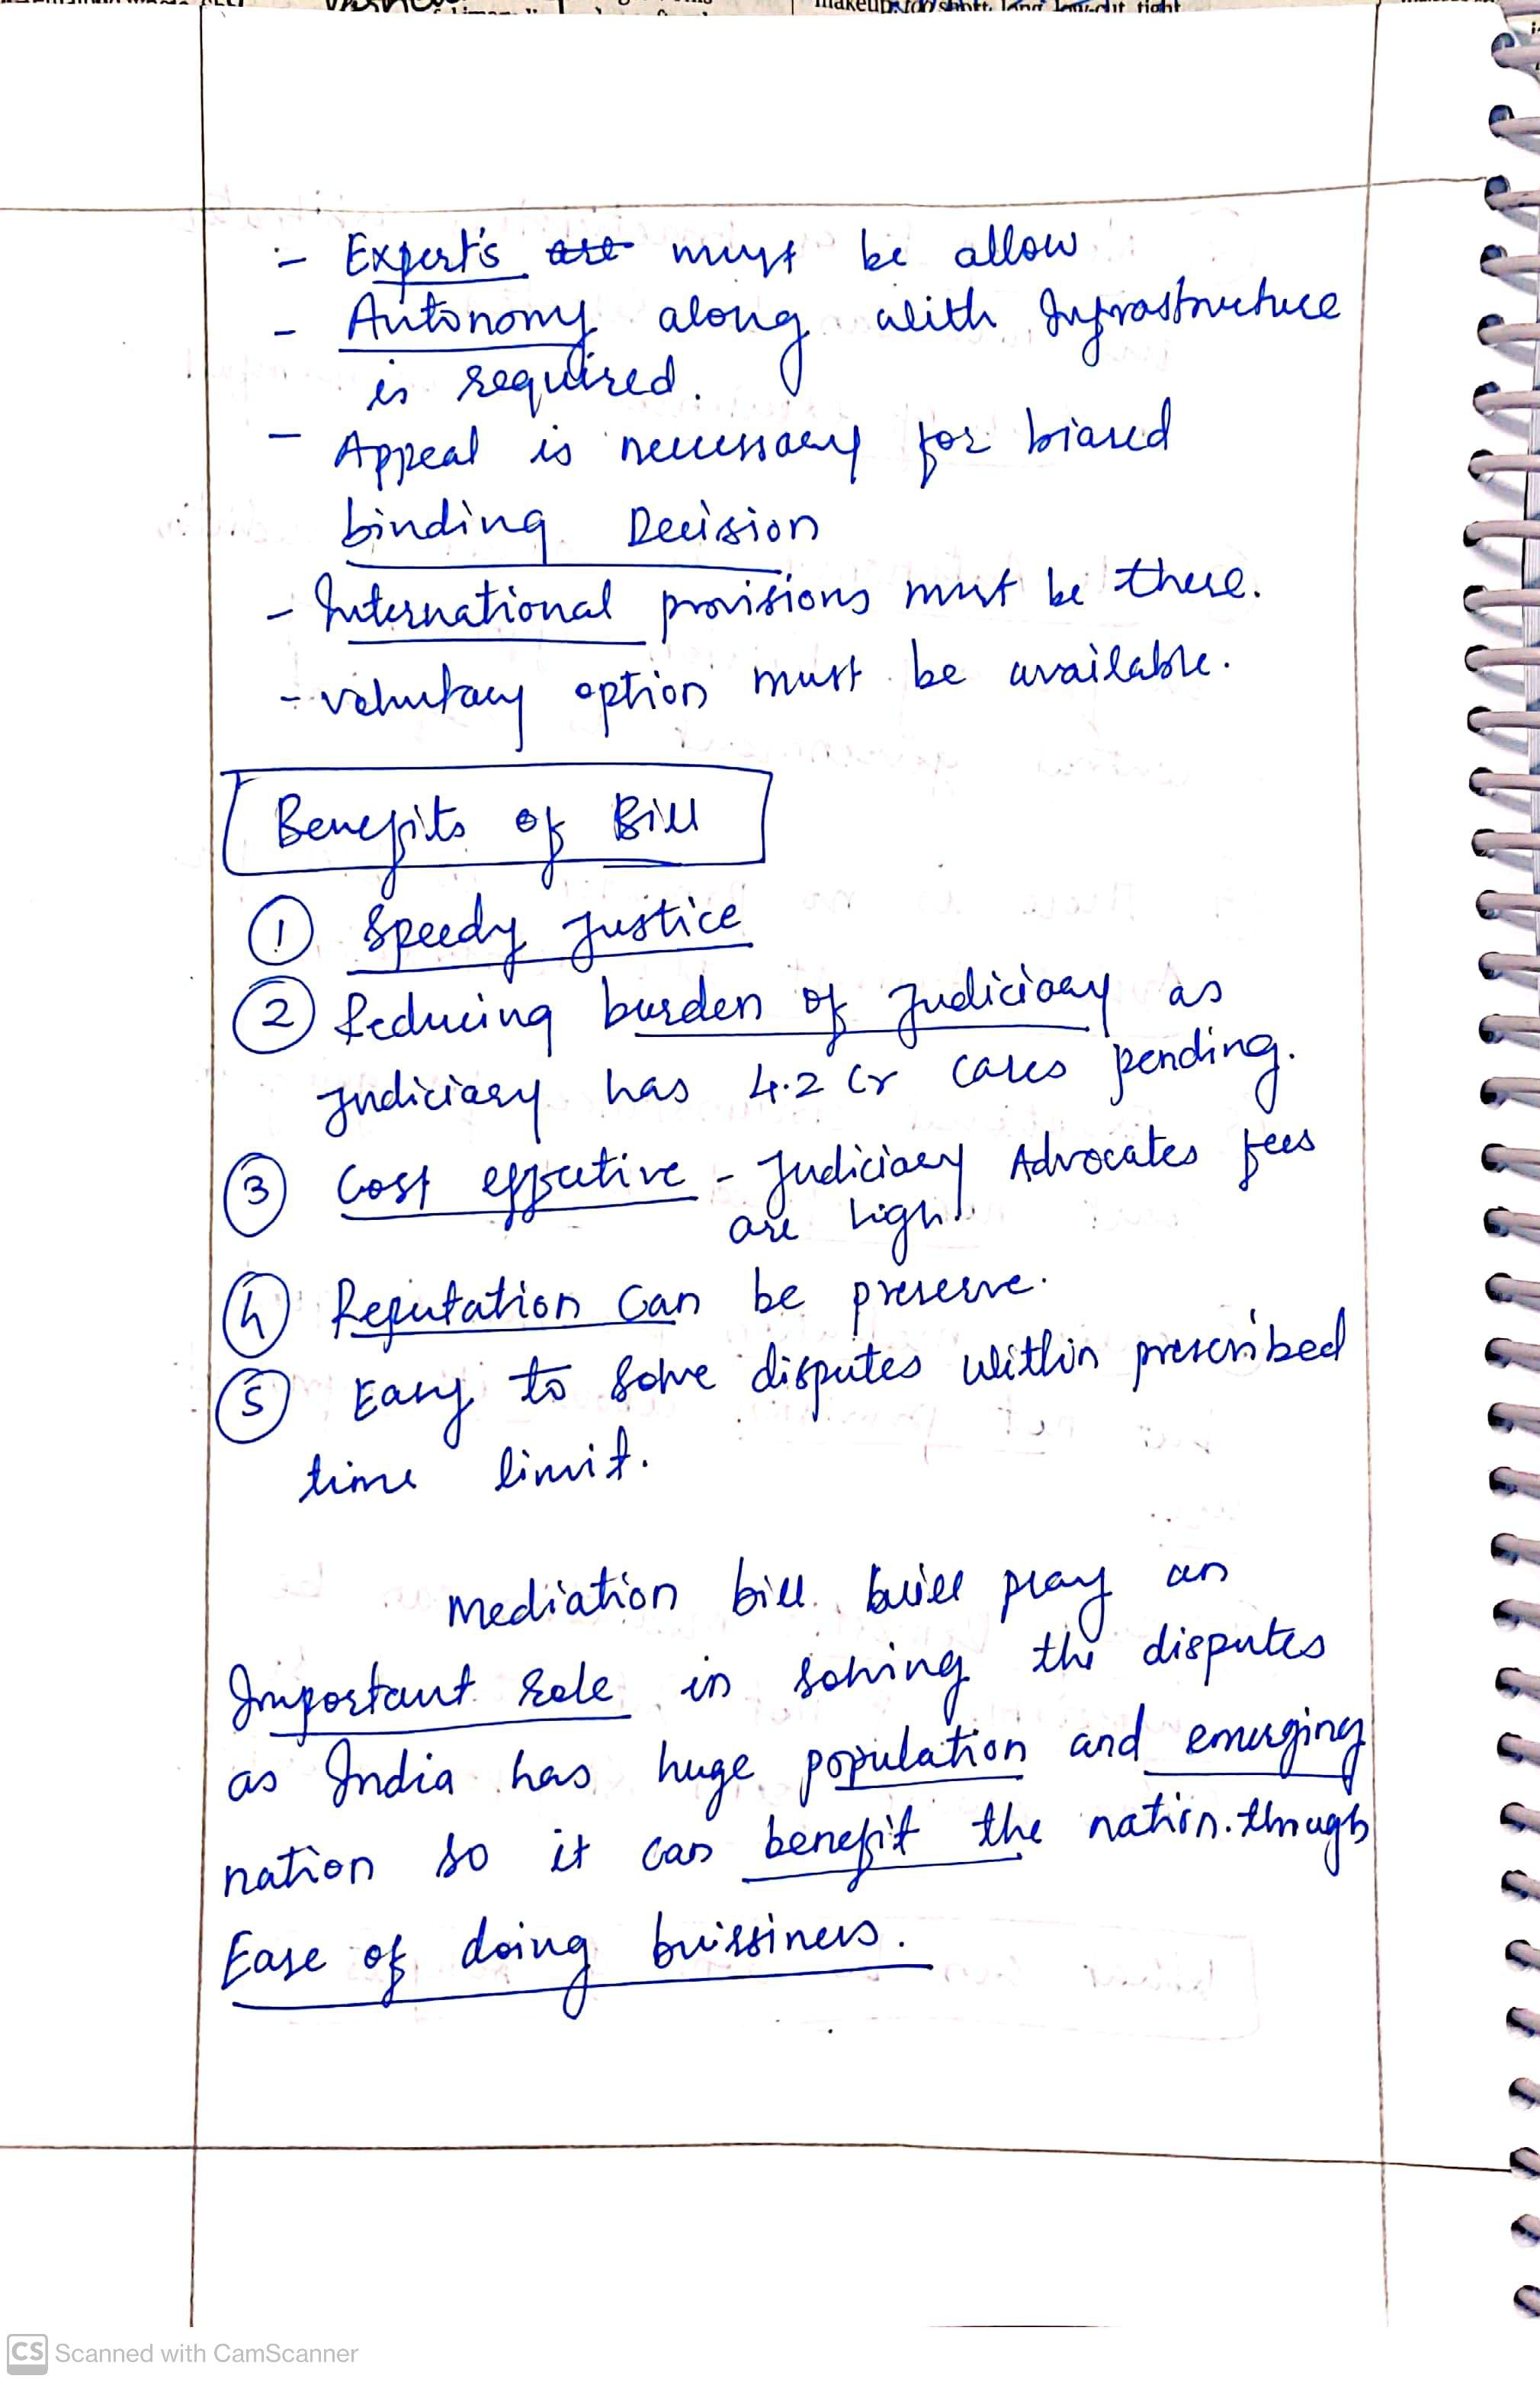 - Expert's are must be allow
- Autonomy along with Infrastructure
is required.
- Appeal is necessary for biased
binding Decision
- International provisions must be there.
- voluntary option must be available.
Benefits of Bill
1 Speedy Justice
2 Reducing burden of Judiciary as
Judiciary has 4.2 Cr cases pending.
3 Cost effective - Judiciary Advocates fees
are high.
4 Reputation Can be preserve.
5 Easy to Solve disputes within prescribed
time limit.
Mediation bill will play an
Important role in solving the disputes
as India has huge population and emerging
nation so it can benefit the nation. through
Ease of doing buissiness.
CS Scanned with CamScanner